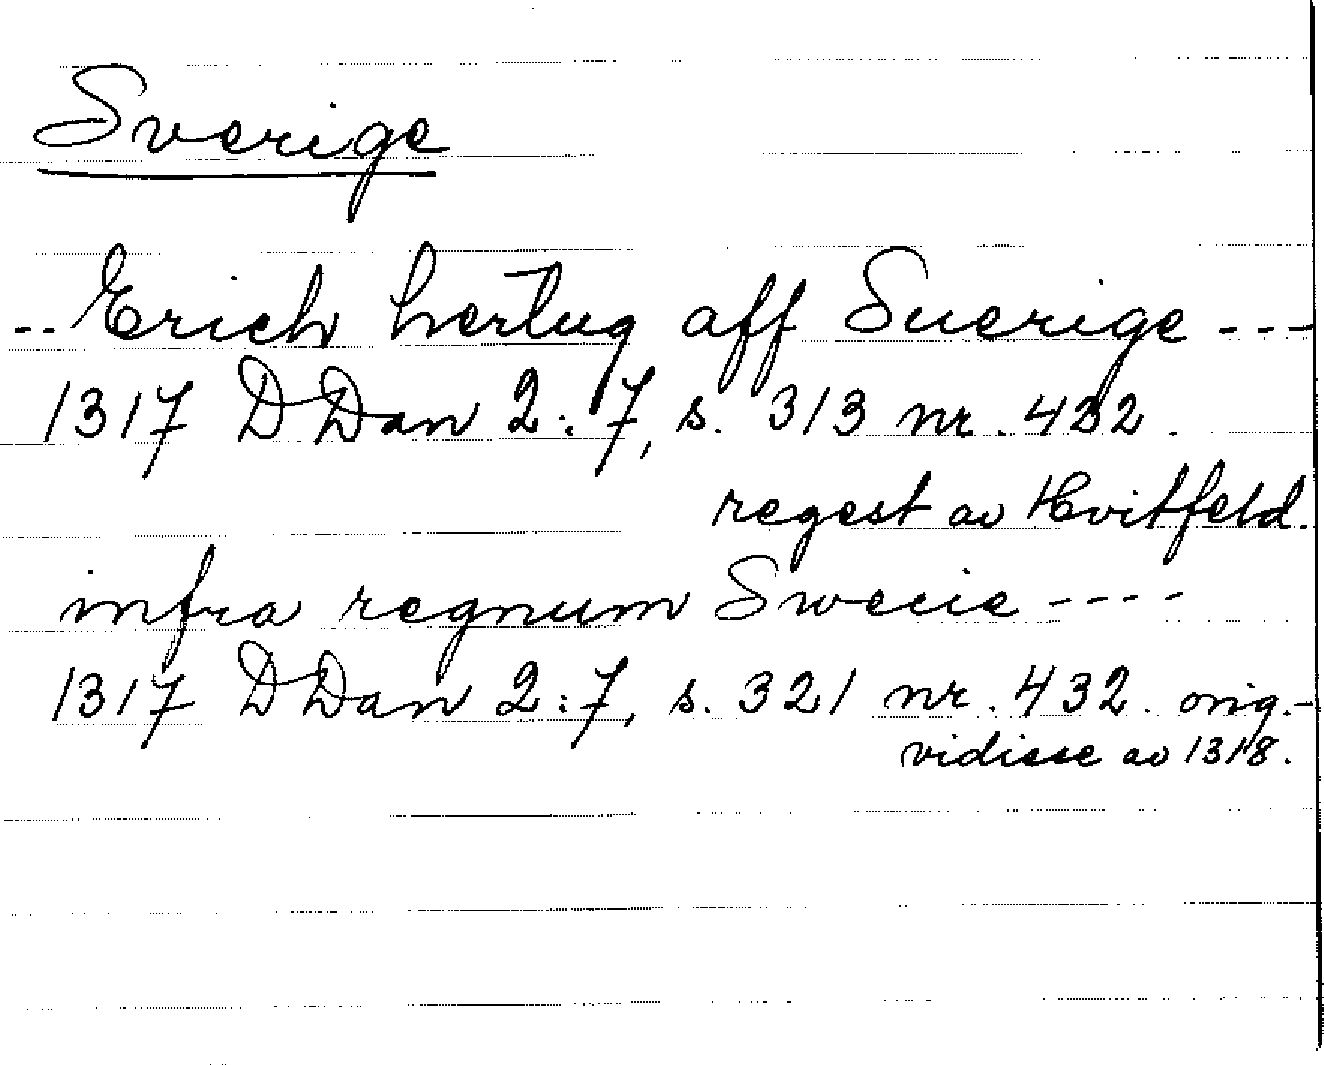 Sverige
-- Erich hertug aff Suerige ---
1317 DDan 2:7, s. 313 nr. 432.
regest av Hvitfeld.
infra regnum Swecie ----
1317 DDan 2:7, s. 321 nr. 432. orig.-
vidisse av 1318.